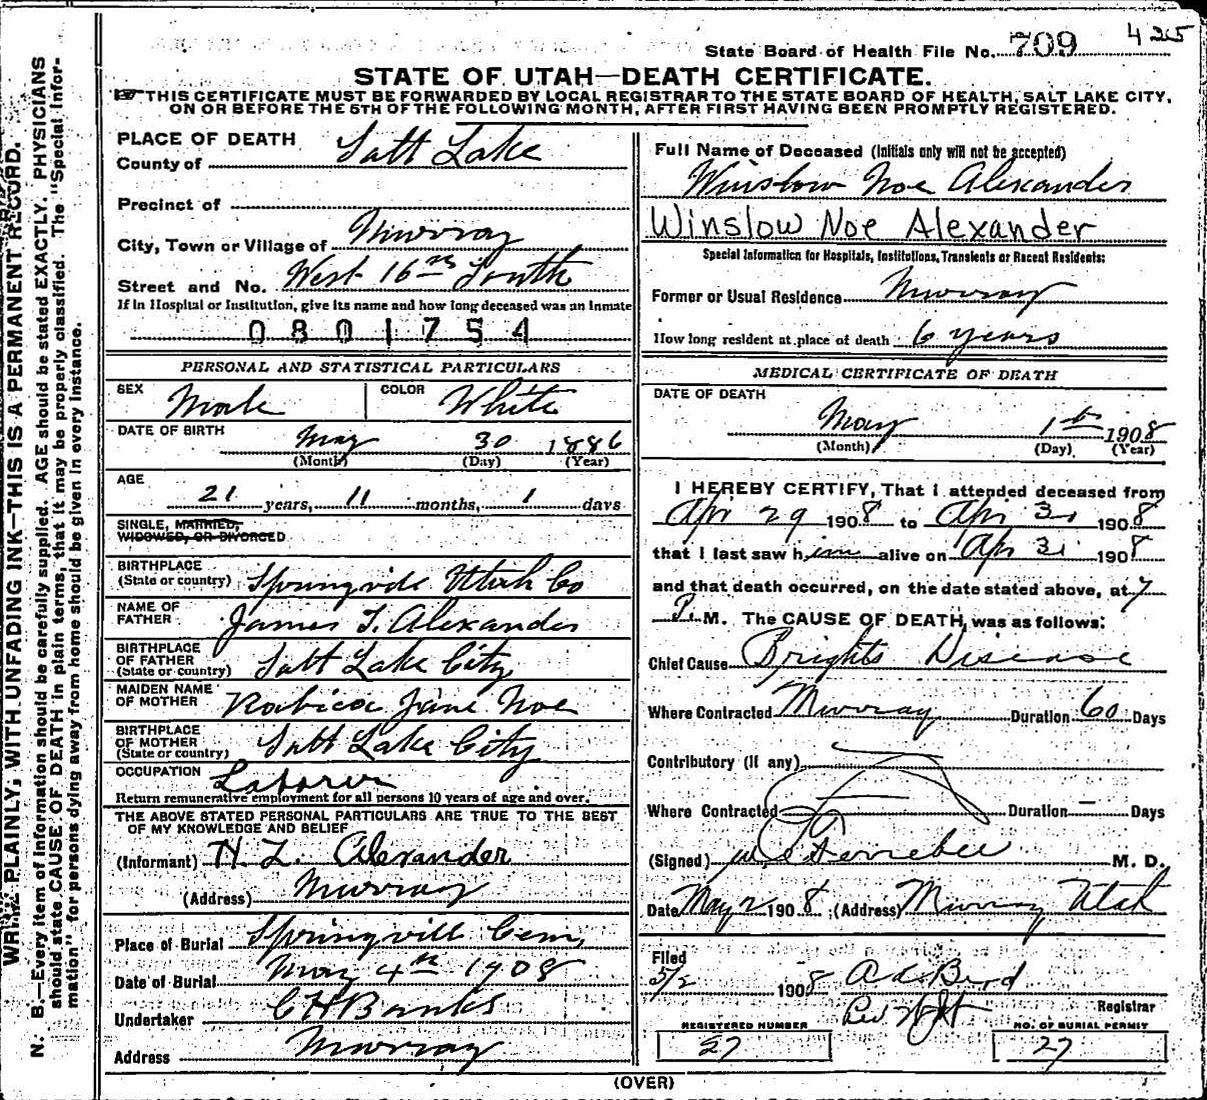 425
State Board of Health File No. 709
STATE OF UTAH—DEATH CERTIFICATE.
☞THIS CERTIFICATE MUST BE FORWARDED BY LOCAL REGISTRAR TO THE STATE BOARD OF HEALTH, SALT LAKE CITY,
ON OR BEFORE THE 5TH OF THE FOLLOWING MONTH, AFTER FIRST HAVING BEEN PROMPTLY REGISTERED.
PLACE OF DEATH
County of Salt Lake
Precinct of
City, Town or Village of Murray
Street and No. West 16th South
If in Hospital or Institution, give its name and how long deceased was an inmate
0801754
PERSONAL AND STATISTICAL PARTICULARS
SEX Male COLOR White
DATE OF BIRTH May 30 1886
(Month) (Day) (Year)
AGE 21 years, 11 months, 1 days
SINGLE, MARRIED,
WIDOWED, OR DIVORCED
BIRTHPLACE
(State or country) Springvill Utah Co
NAME OF
FATHER James T. Alexander
BIRTHPLACE
OF FATHER
(State or country) Salt Lake City
MAIDEN NAME
OF MOTHER Rabica Jane Noe
BIRTHPLACE
OF MOTHER
(State or country) Salt Lake City
OCCUPATION Laborer
Return remunerative employment for all persons 10 years of age and over.
THE ABOVE STATED PERSONAL PARTICULARS ARE TRUE TO THE BEST
OF MY KNOWLEDGE AND BELIEF
(Informant) H. L. Alexander
(Address) Murray
Place of Burial Springvill Cem,
Date of Burial May 4th 1908
Undertaker C H Banks
Address Murray
Full Name of Deceased (Initials only will not be accepted)
Winslow Noe Alexander
Winslow Noe Alexander
Special Information for Hospitals, Institutions, Transients or Recent Residents:
Former or Usual Residence Murray
How long resident at place of death 6 years
MEDICAL CERTIFICATE OF DEATH
DATE OF DEATH
May 1st 1908
(Month) (Day) (Year)
I HEREBY CERTIFY, That I attended deceased from
Apr 29 1908 to Apr 31 1908
that I last saw him alive on Apr 31 1908
and that death occurred, on the date stated above, at 7
P.M. The CAUSE OF DEATH, was as follows:
Chief Cause Brights Disease
Where Contracted Murray Duration 60 Days
Contributory (If any)
Where Contracted Duration — Days
(Signed) Ferrebee M. D.
Date May 2 1908 (Address) Murray Utah
Filed
5/2 1908
Registrar
REGISTERED NUMBER
27
NO. OF BURIAL PERMIT
27
(OVER)
WRITE PLAINLY, WITH UNFADING INK—THIS IS A PERMANENT RECORD.
N. B.—Every item of information should be carefully supplied. AGE should be stated EXACTLY. PHYSICIANS
should state CAUSE OF DEATH in plain terms, that it may be properly classified. The "Special Infor-
mation" for persons dying away from home should be given in every instance.